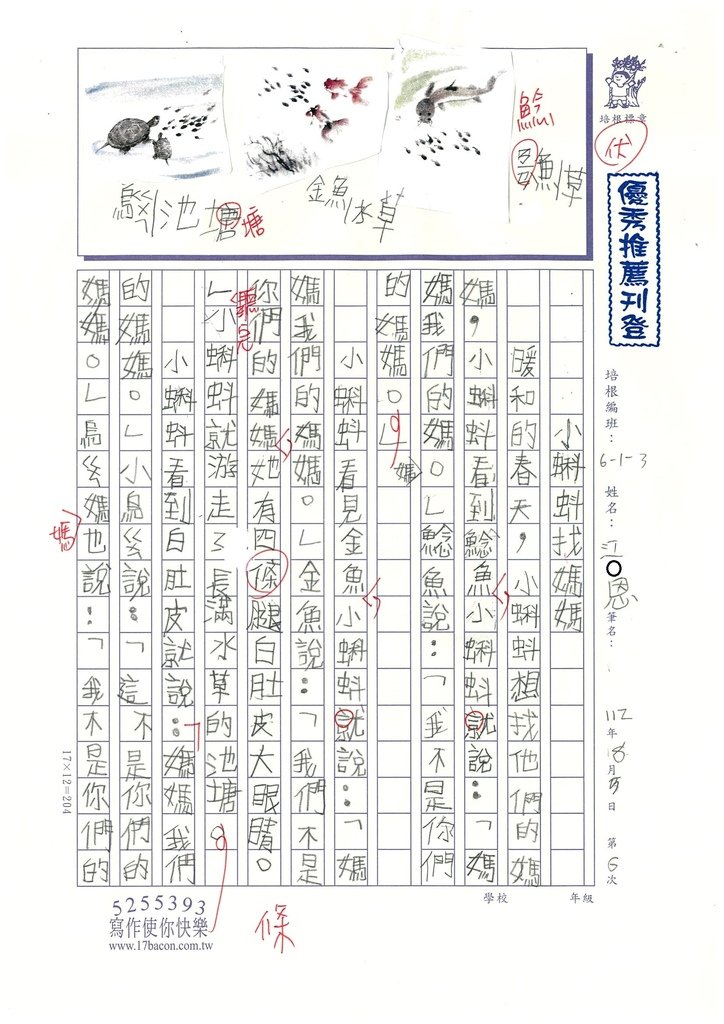 培根標章
優秀推薦刊登
培根編班：6-1-3 姓名：江○恩 筆名： 112年 8月 日 第6次
學校 年級
伏
鯰
魚草
金魚水草
池塘
塘
小蝌蚪找媽媽
暖和的春天，小蝌蚪想找他們的媽
媽，小蝌蚪看到鯰魚小蝌蚪就說：「媽
媽我們的媽。」鯰魚說：「我不是你們
媽
的媽媽。」
小蝌蚪看見金魚小蝌蚪就說：「媽
媽我們的媽媽。」金魚說：「我們不是
你們的媽媽她有四條腿白肚皮大眼睛。
聽完
」小蝌蚪就游走了長滿水草的池塘。
小蝌蚪看到白肚皮就說：媽媽我們
的媽媽。」小烏幺說：「這不是你們的
媽媽。」烏幺媽也說：「我不是你們的
媽
條
17×12=204
5255393
寫作使你快樂
www.17bacon.com.tw